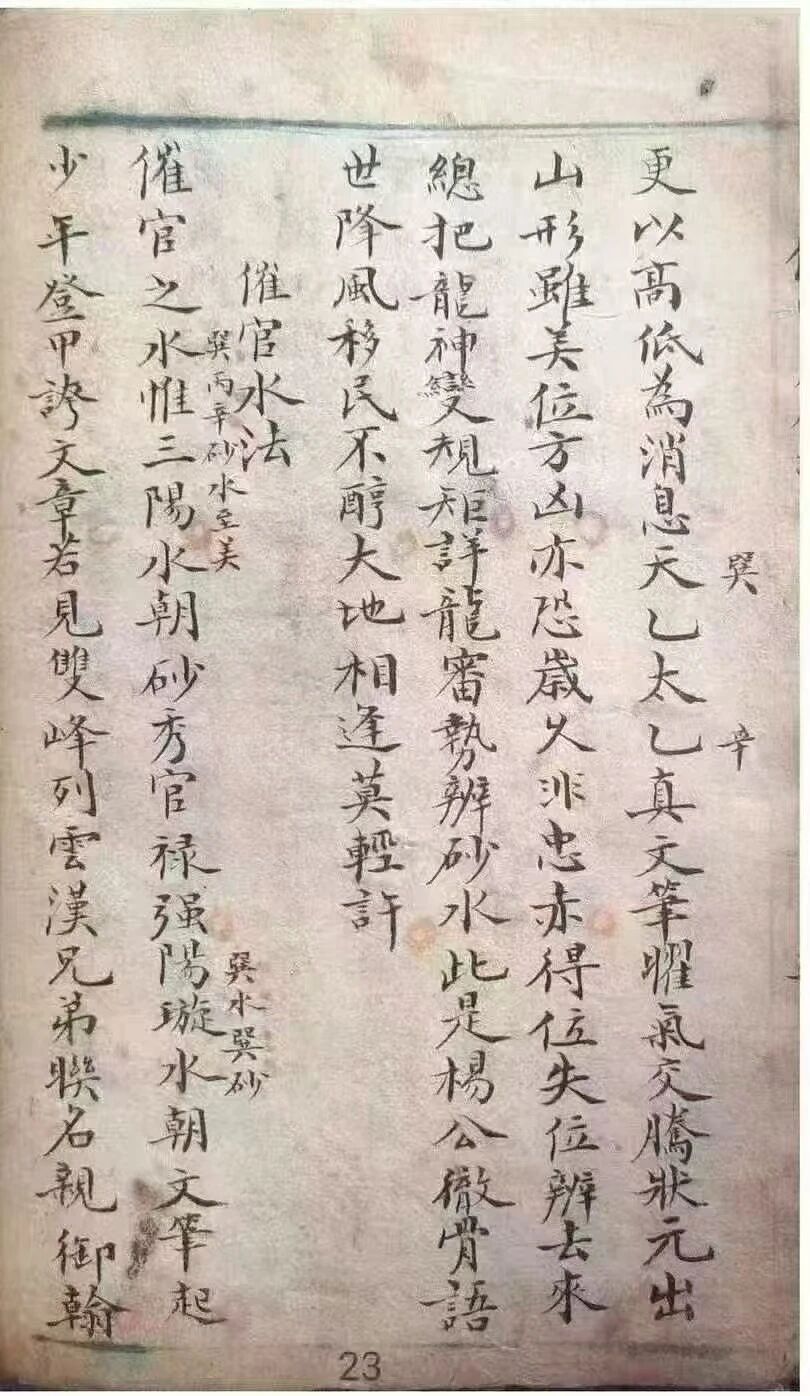 巽
辛
更以高低為消息天乙太乙真文筆曜氣交騰狀元出
山形雖美位方凶亦恐歲火非忠赤得位失位辨去來
總把龍神變規矩詳龍審勢辨砂水此是楊公徹骨語
世降風移民不醇大地相逢莫輕許
催官水法
巽丙辛砂水至美
巽水巽砂
催官之水惟三陽水朝砂秀官禄强陽璇水朝文筆起
少年登甲誇文章若見雙峰列雲漢兄弟聮名親御翰
23